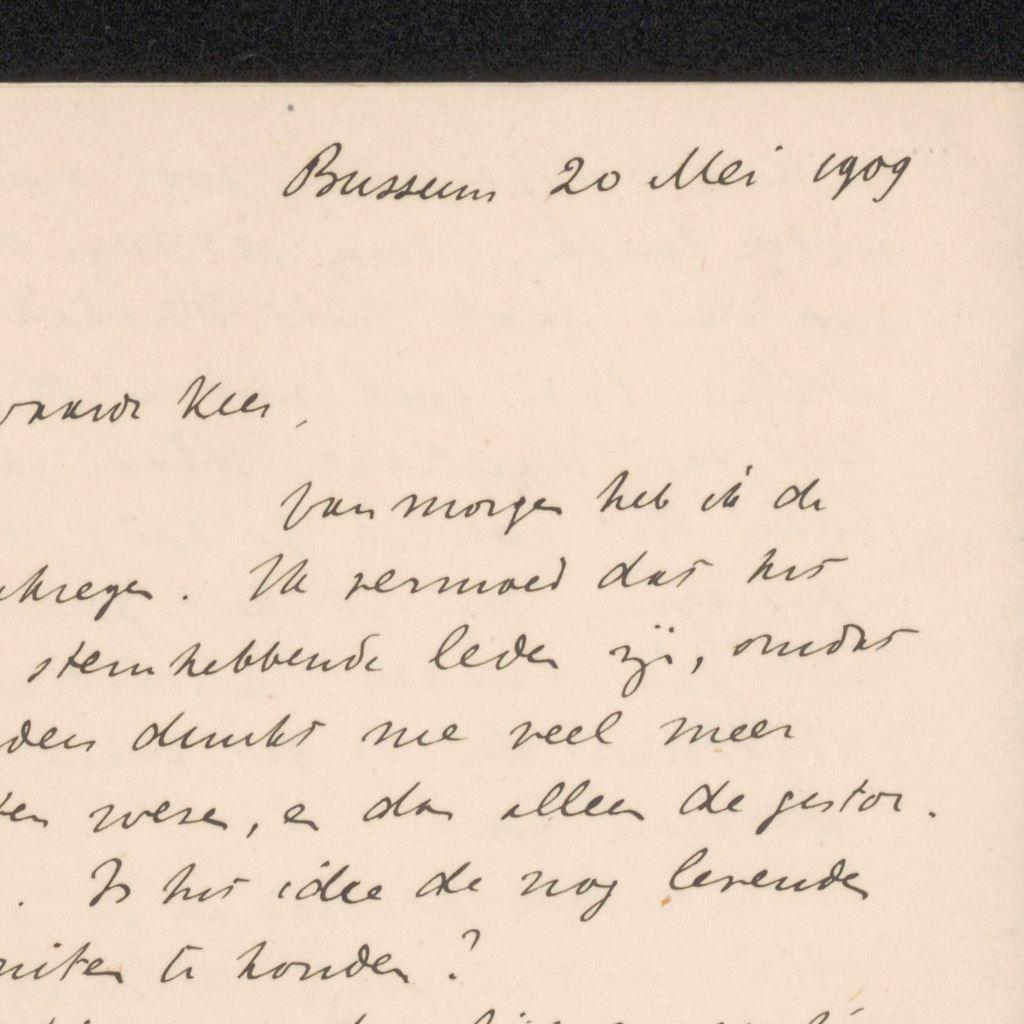 Bussum 20 Mei 1909
waarde Kees,
Van morgen heb ik de
kregen. Ik vermoed dat het
stemhebbende leden zijn, omdat
dunkt me veel meer
weren, en dan alleen de gestor.
Is het idee de nog levenden
te houden?